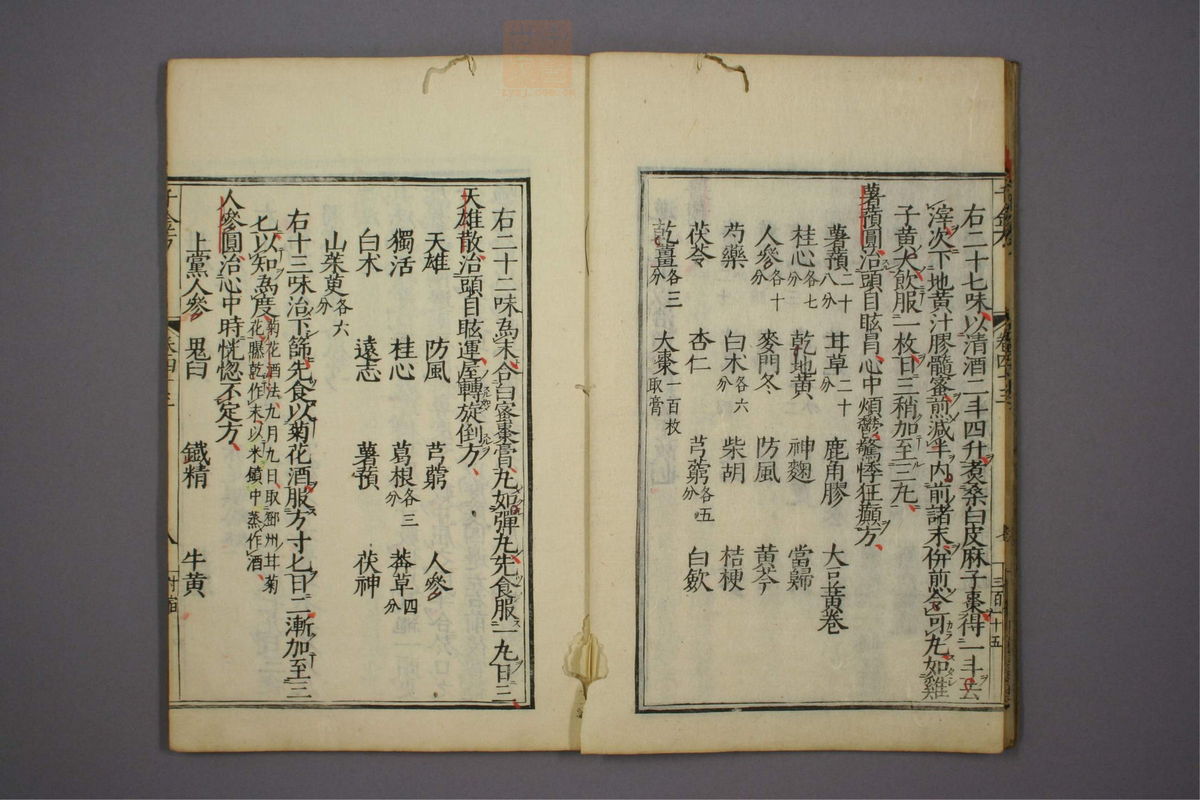 右二十七味以清酒二斗四升煮桑白皮麻子棗得一斗去
滓次下地黃汁膠髓蜜煎減半內前諸末併煎令可丸如雞
子黃大飲服一枚日三稍加至三丸
薯蕷圓治頭目眩冒心中煩鬱驚悸狂癲方
薯蕷二十八分 甘草二十分 鹿角膠 大豆黃卷
桂心各七分 乾地黃 神麴 當歸
人參各十分 麥門冬 防風 黃芩
芍藥 白朮各六分 柴胡 桔梗
茯苓 杏仁 芎藭各五分 白斂
乾薑各三分 大棗一百枚取膏
右二十二味為末合白蜜棗膏丸如彈丸先食服一丸日三
天雄散治頭目眩運屋轉旋倒方
天雄 防風 芎藭 人參
獨活 桂心 葛根各三分 莽草四分
白朮 遠志 薯蕷 茯神
山茱萸各六分
右十三味治下篩先食以菊花酒服方寸匕日二漸加至三
匕以知為度菊花酒法九月九日取鄧州甘菊花曝乾作末以米䭀中蒸作酒
人參圓治心中時恍惚不定方
上黨人參 鬼臼 鐵精 牛黃
卷四十三
三百一十五